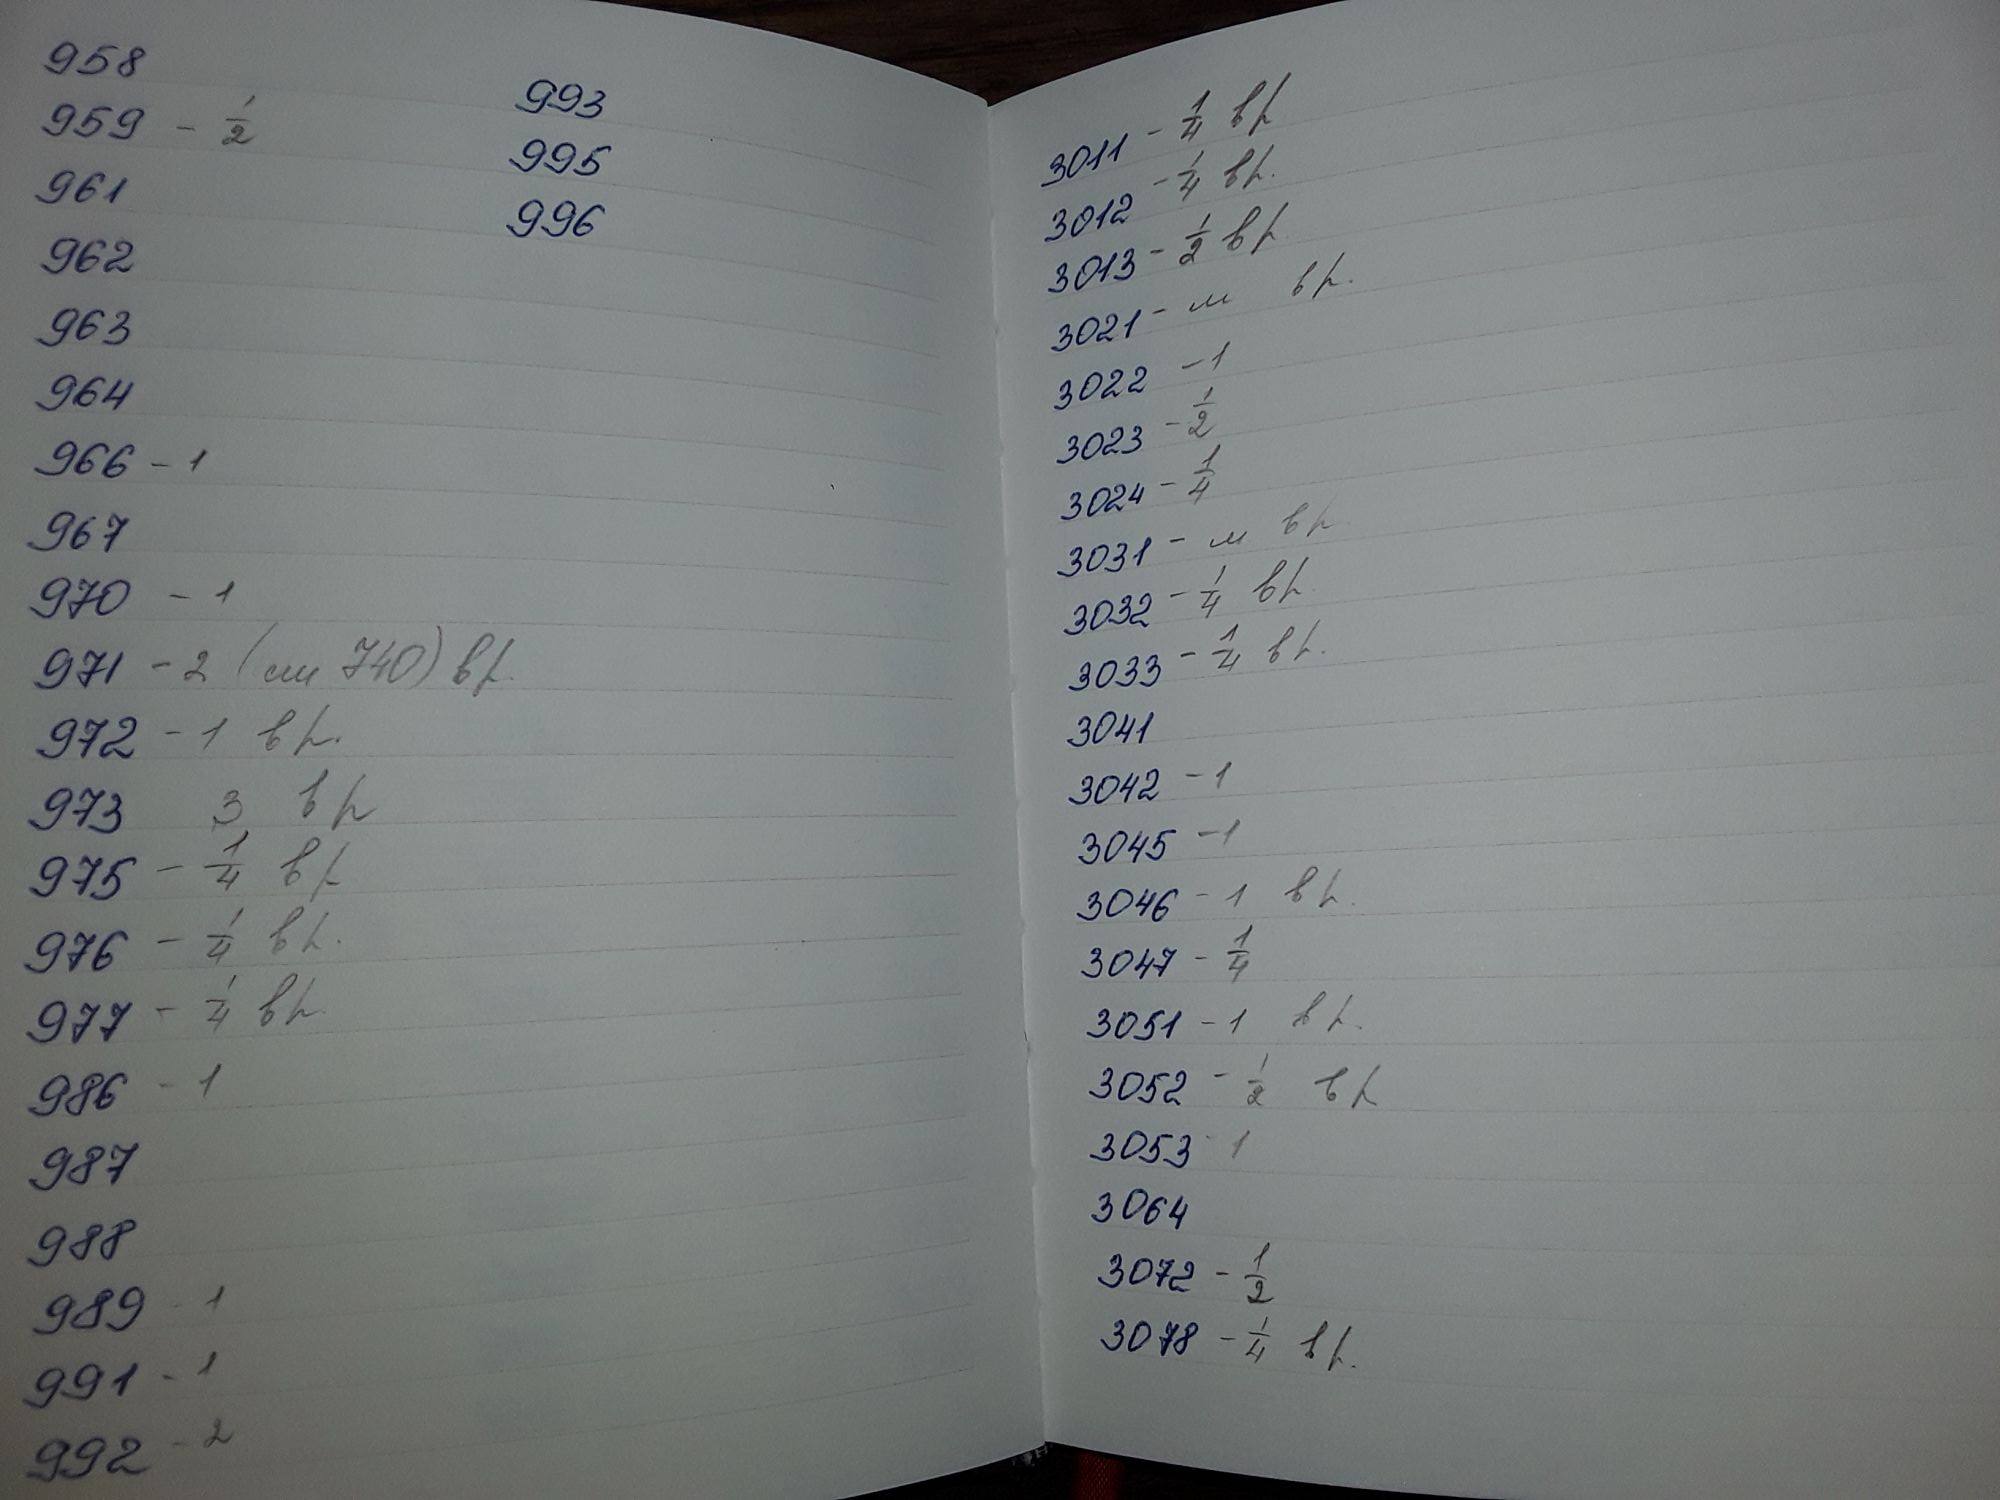 958
959 - 1/2
961
962
963
964
966 - 1
967
970 - 1
971 - 2 (см 740) вр.
972 - 1 вр.
973 3 вр
975 - 1/4 вр
976 - 1/4 вр.
977 - 1/4 вр.
986 - 1
987
988
989 - 1
991 - 1
992 - 2
993
995
996
3011 - 1/4 вр
3012 - 1/4 вр.
3013 - 1/2 вр
3021 - м вр.
3022 - 1
3023 - 1/2
3024 - 1/4
3031 - м вр.
3032 - 1/4 вр.
3033 - 1/4 вр.
3041
3042 - 1
3045 - 1
3046 - 1 вр.
3047 - 1/4
3051 - 1 вр.
3052 - 1/2 вр
3053 - 1
3064
3072 - 1/2
3078 - 1/4 вр.